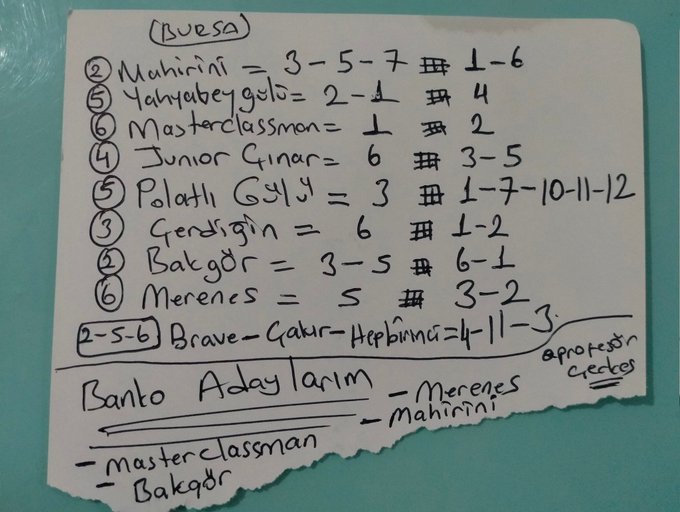 (BURSA)
② Mahirini = 3-5-7 # 1-6
⑤ Yahyabey gülü = 2-1 # 4
⑥ Masterclassman = 1 # 2
④ Junior Çınar = 6 # 3-5
⑤ Polatlı Gülü = 3 # 1-7-10-11-12
③ Gerdiğin = 6 # 1-2
② Bakgör = 3-5 # 6-1
⑥ Merenes = 5 # 3-2
2-5-6 Brave-Çakır-Hepbirinci=4-11-3.
@profesör
Gerkes
Banko Adaylarım
- Merenes
- Mahirini
- Masterclassman
- Bakgör